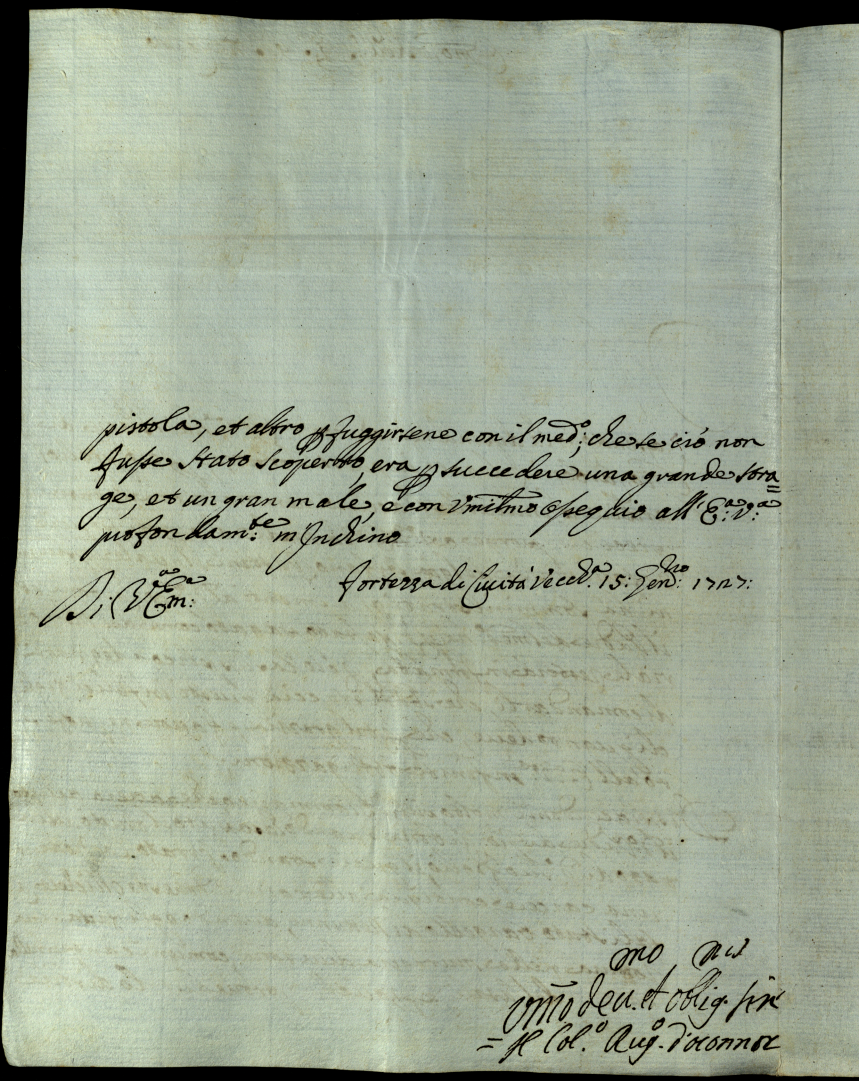 pistola, et altro p fuggirsene con il med:º, che se ciò non
fusse stato scoperto, era p succedere una grande stra=
ge, et un gran male, e con Vmilmo Ossequio all' E:ª V:ª
profondam:te m Inchino
Di V:ª Em:ª
Fortezza di Ciuità Vecch:ª 15: Gen:ro 1727:
Vmo deu.mo et oblig. ser
= Il Col.º Aug.º d'oconnor